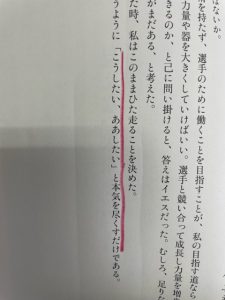 はないか。
を持たず、選手のために働くことを目指すことが、私の目指す道なら
力量や器を大きくしていけばいい。選手と競い合って成長し力量を増
きるのか、と己に問い掛けると、答えはイエスだった。むしろ、足りな
がまだある、と考えた。
た時、私はこのままひた走ることを決めた。
うように「こうしたい、ああしたい」と本気を尽くすだけである。